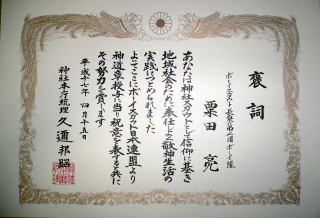 褒詞
ボーイスカウト長野第一団ボーイ隊
栗田 亮
あなたは神社スカウトとして信仰に基き
地域社会のために奉仕し又敬神生活の
実践につとめられました
よってここにボーイスカウト日本連盟より
神道章授与に当り祝意を表すると共に
その努力を賞します
平成十七年 四月十五日
神社本庁統理 久邇邦昭